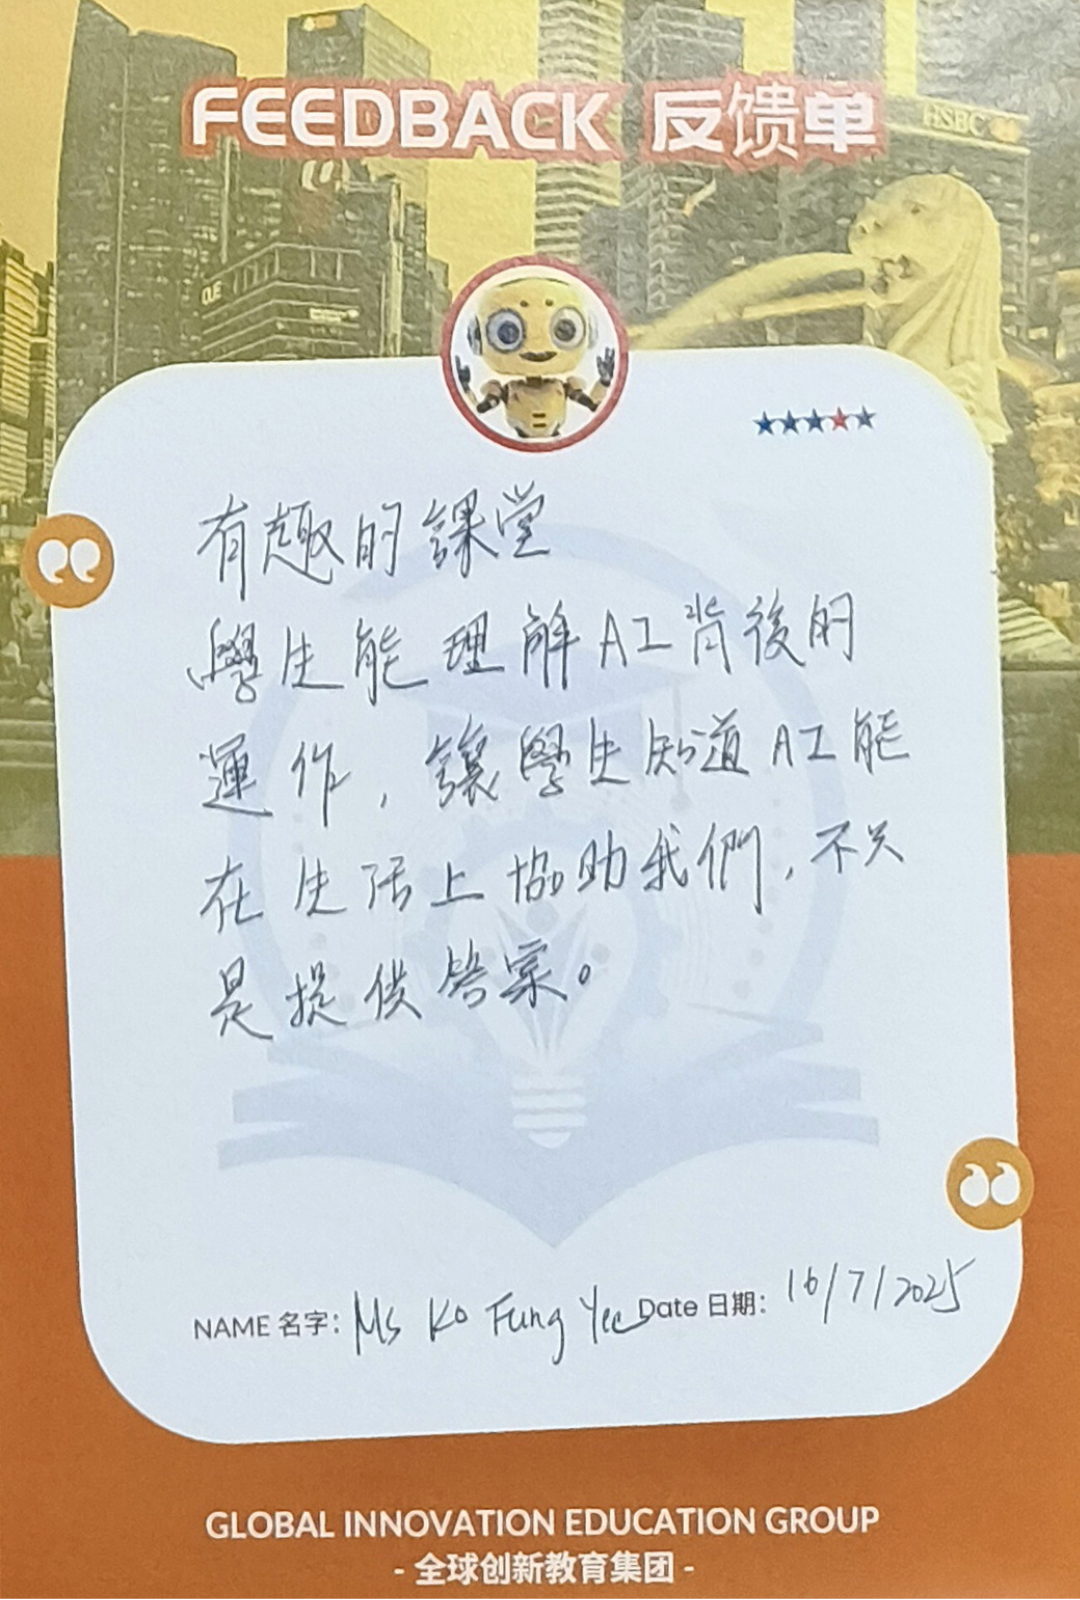 FEEDBACK 反馈单
HSBC
OUE
有趣的課堂
學生能理解AI背後的
運作,讓學生知道AI能
在生活上協助我們,不只
是提供答案。
NAME 名字: Ms Ko Fung Yee Date 日期: 16/7/2025
GLOBAL INNOVATION EDUCATION GROUP
- 全球创新教育集团 -